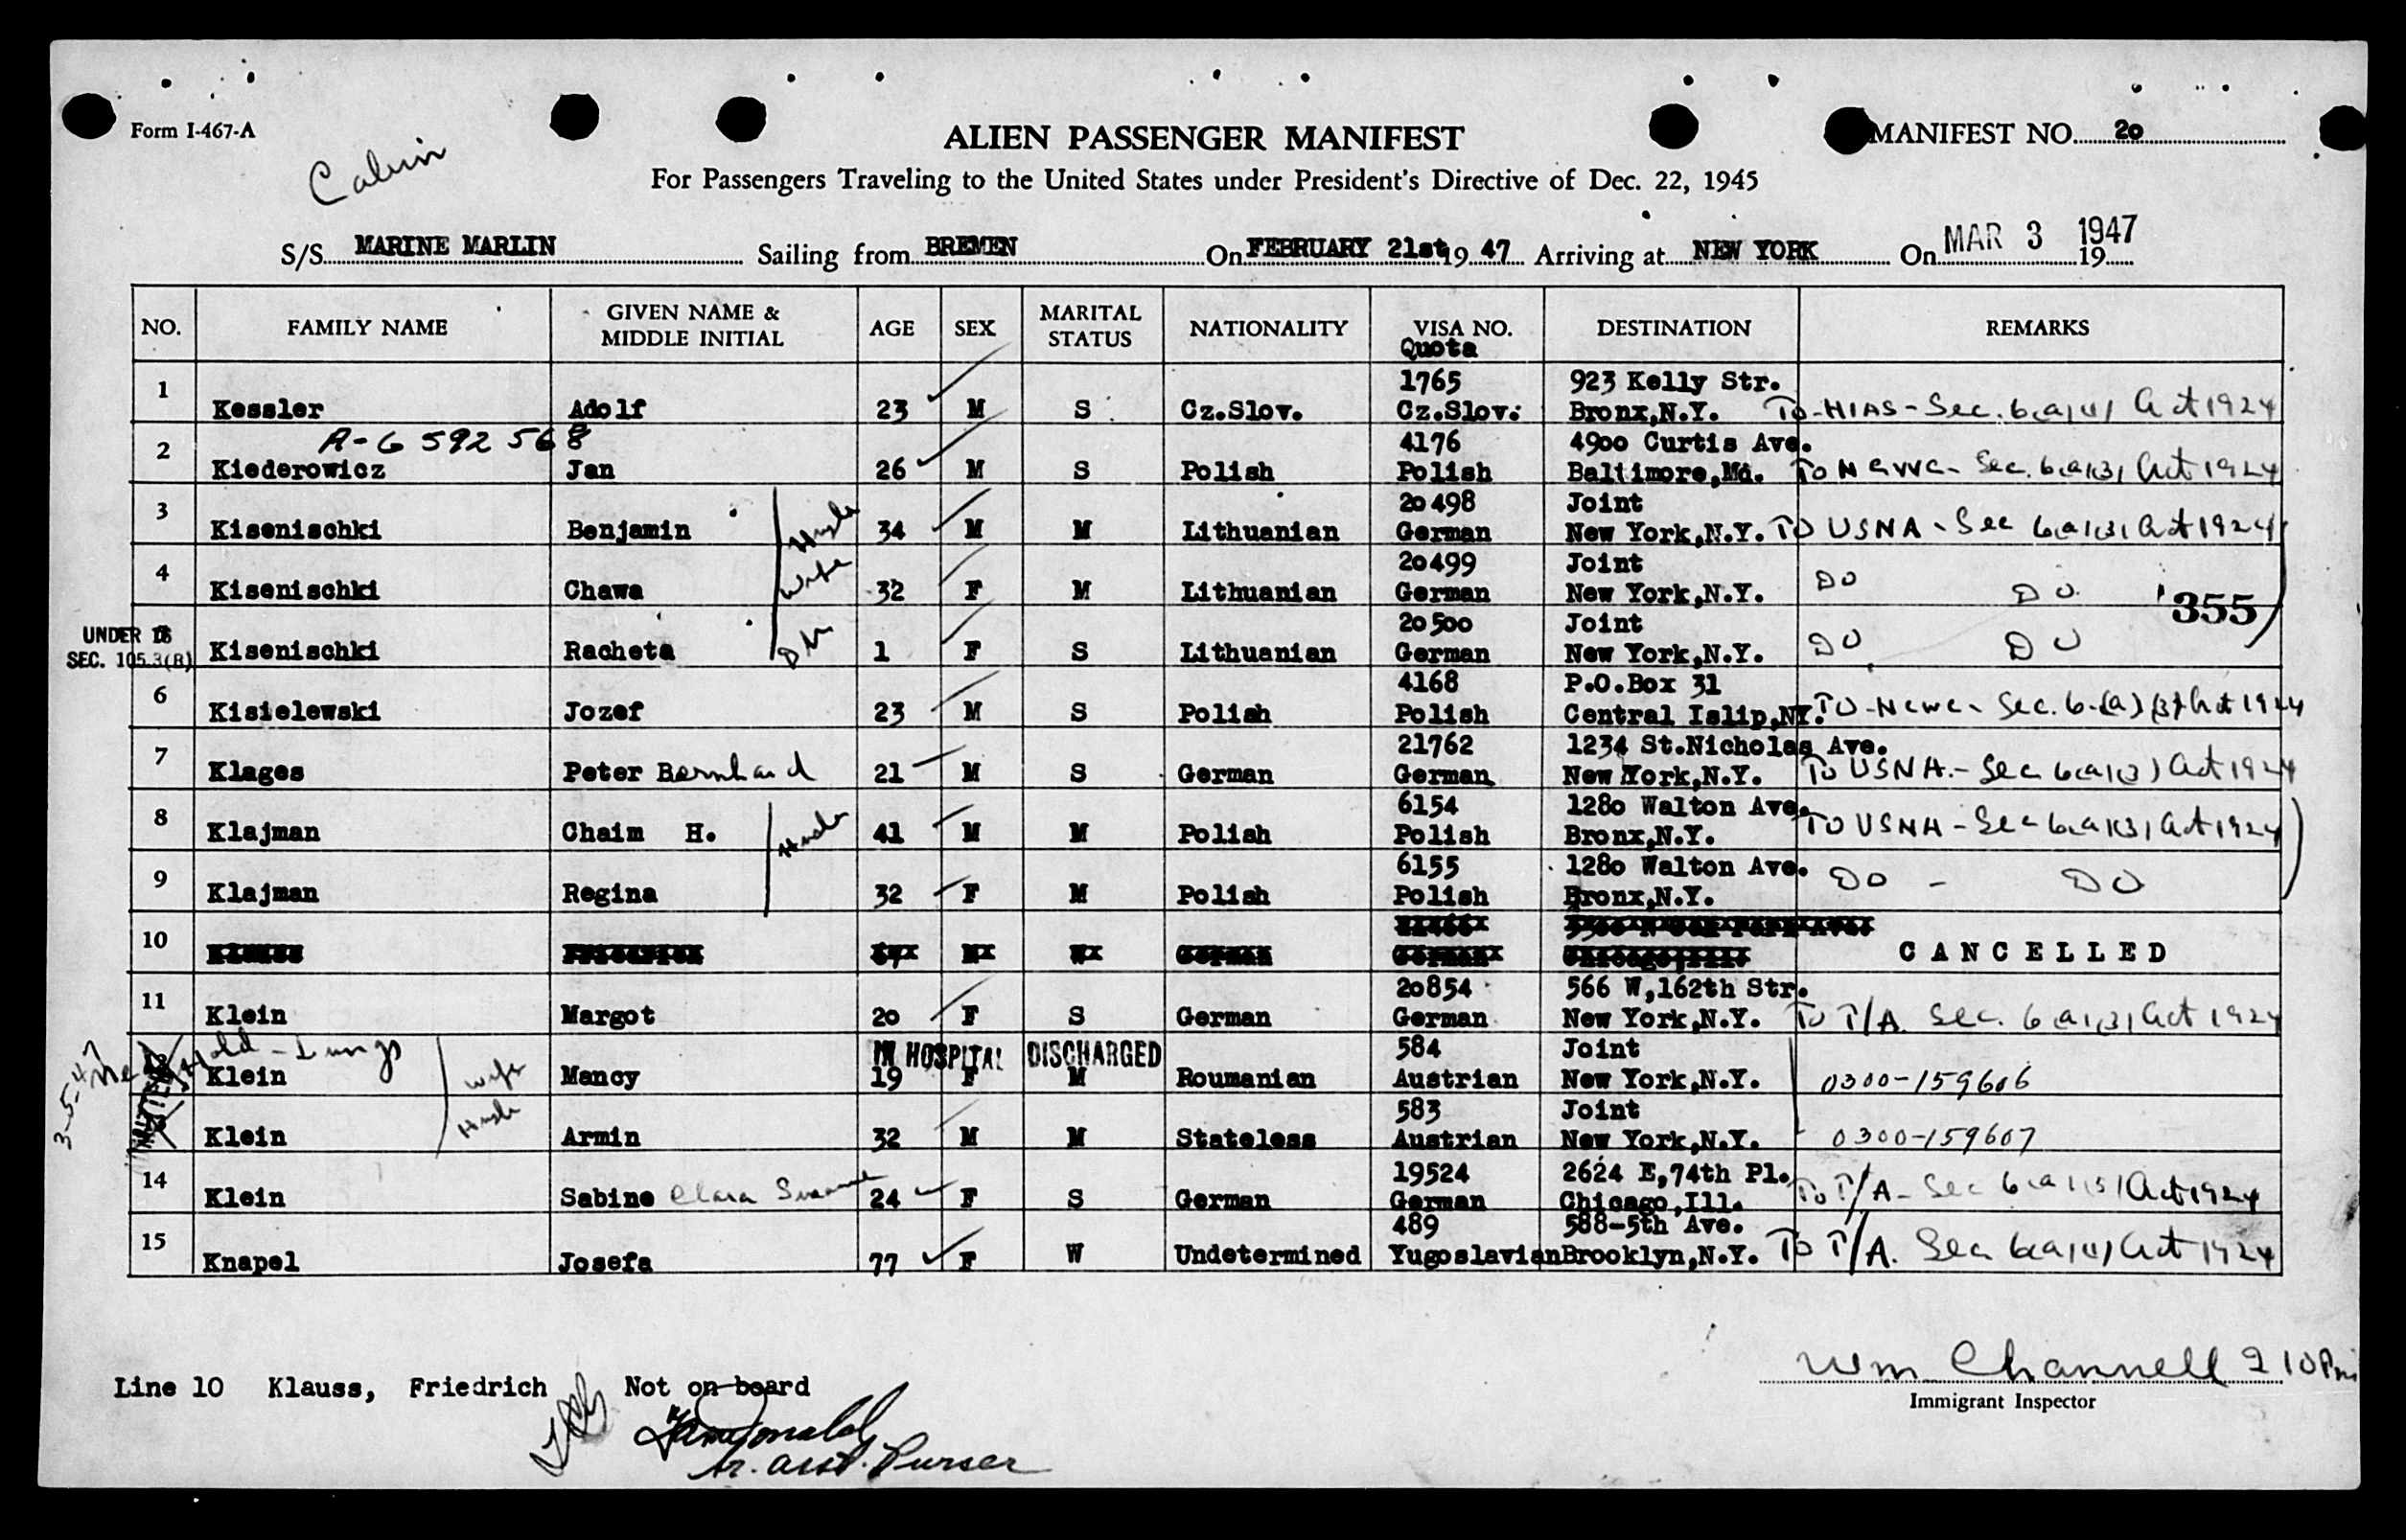 Form I-467-A
Calvin
ALIEN PASSENGER MANIFEST
MANIFEST NO. 20
For Passengers Traveling to the United States under President's Directive of Dec. 22, 1945
S/S MARINE MARLIN Sailing from BREMEN On FEBRUARY 21st 19 47 Arriving at NEW YORK On MAR 3 1947 19
NO. FAMILY NAME GIVEN NAME & MIDDLE INITIAL AGE SEX MARITAL STATUS NATIONALITY VISA NO. Quota DESTINATION REMARKS
1 1765 923 Kelly Str.
Kessler Adolf 23 M S Cz.Slov. Cz.Slov. Bronx,N.Y. To-HIAS-Sec. 6(a)(4) Act 1924
A-6 592 568
2 4176 4900 Curtis Ave.
Kiederowicz Jan 26 M S Polish Polish Baltimore,Md. To NCWC- Sec. 6(a)(3) Act 1924
3 20498 Joint
Kisenischki Benjamin Husb 34 M M Lithuanian German New York,N.Y. TO USNA - Sec 6(a)(3) Act 1924
4 20499 Joint
Kisenischki Chawa Wife 32 F M Lithuanian German New York,N.Y. DO DO 355
UNDER 16 20500 Joint
SEC. 105.3(B) Kisenischki Racheta 1 F S Lithuanian German New York,N.Y. DO DO
6 4168 P.O.Box 31
Kisielewski Jozef 23 M S Polish Polish Central Islip,NY. TO-NCWC- Sec. 6-(a)(3) Act 1924
7 21762 1234 St.Nicholas Ave.
Klages Peter Bernhard 21 M S German German New York,N.Y. To USNA.- Sec 6(a)(3) Act 1924
8 6154 1280 Walton Ave.
Klajman Chaim H. Husb 41 M M Polish Polish Bronx,N.Y. TO USNA - Sec 6(a)(3) Act 1924
9 6155 1280 Walton Ave.
Klajman Regina 32 F M Polish Polish Bronx,N.Y. DO - DO
10 CANCELLED
11 20854 566 W,162th Str.
Klein Margot 20 F S German German New York,N.Y. To T/A. Sec. 6(a)(3) Act 1924
Hold - Lungs IN HOSPITAL DISCHARGED 584 Joint
3-5-47 Klein Wife Mancy 19 F M Roumanian Austrian New York,N.Y. 0300-159606
583 Joint
Klein Husb Armin 32 M M Stateless Austrian New York,N.Y. 0300-159607
14 19524 2624 E,74th Pl.
Klein Sabine Clara Susanne 24 F S German German Chicago,Ill. To T/A - Sec 6(a)(3) Act 1924
15 489 588-5th Ave.
Knapel Josefa 77 F W Undetermined Yugoslavian Brooklyn,N.Y. To T/A. Sec 6(a)(4) Act 1924
Wm Channell 2 10 Pm
Immigrant Inspector
Line 10 Klauss, Friedrich Not on board
Jr. asst. Purser